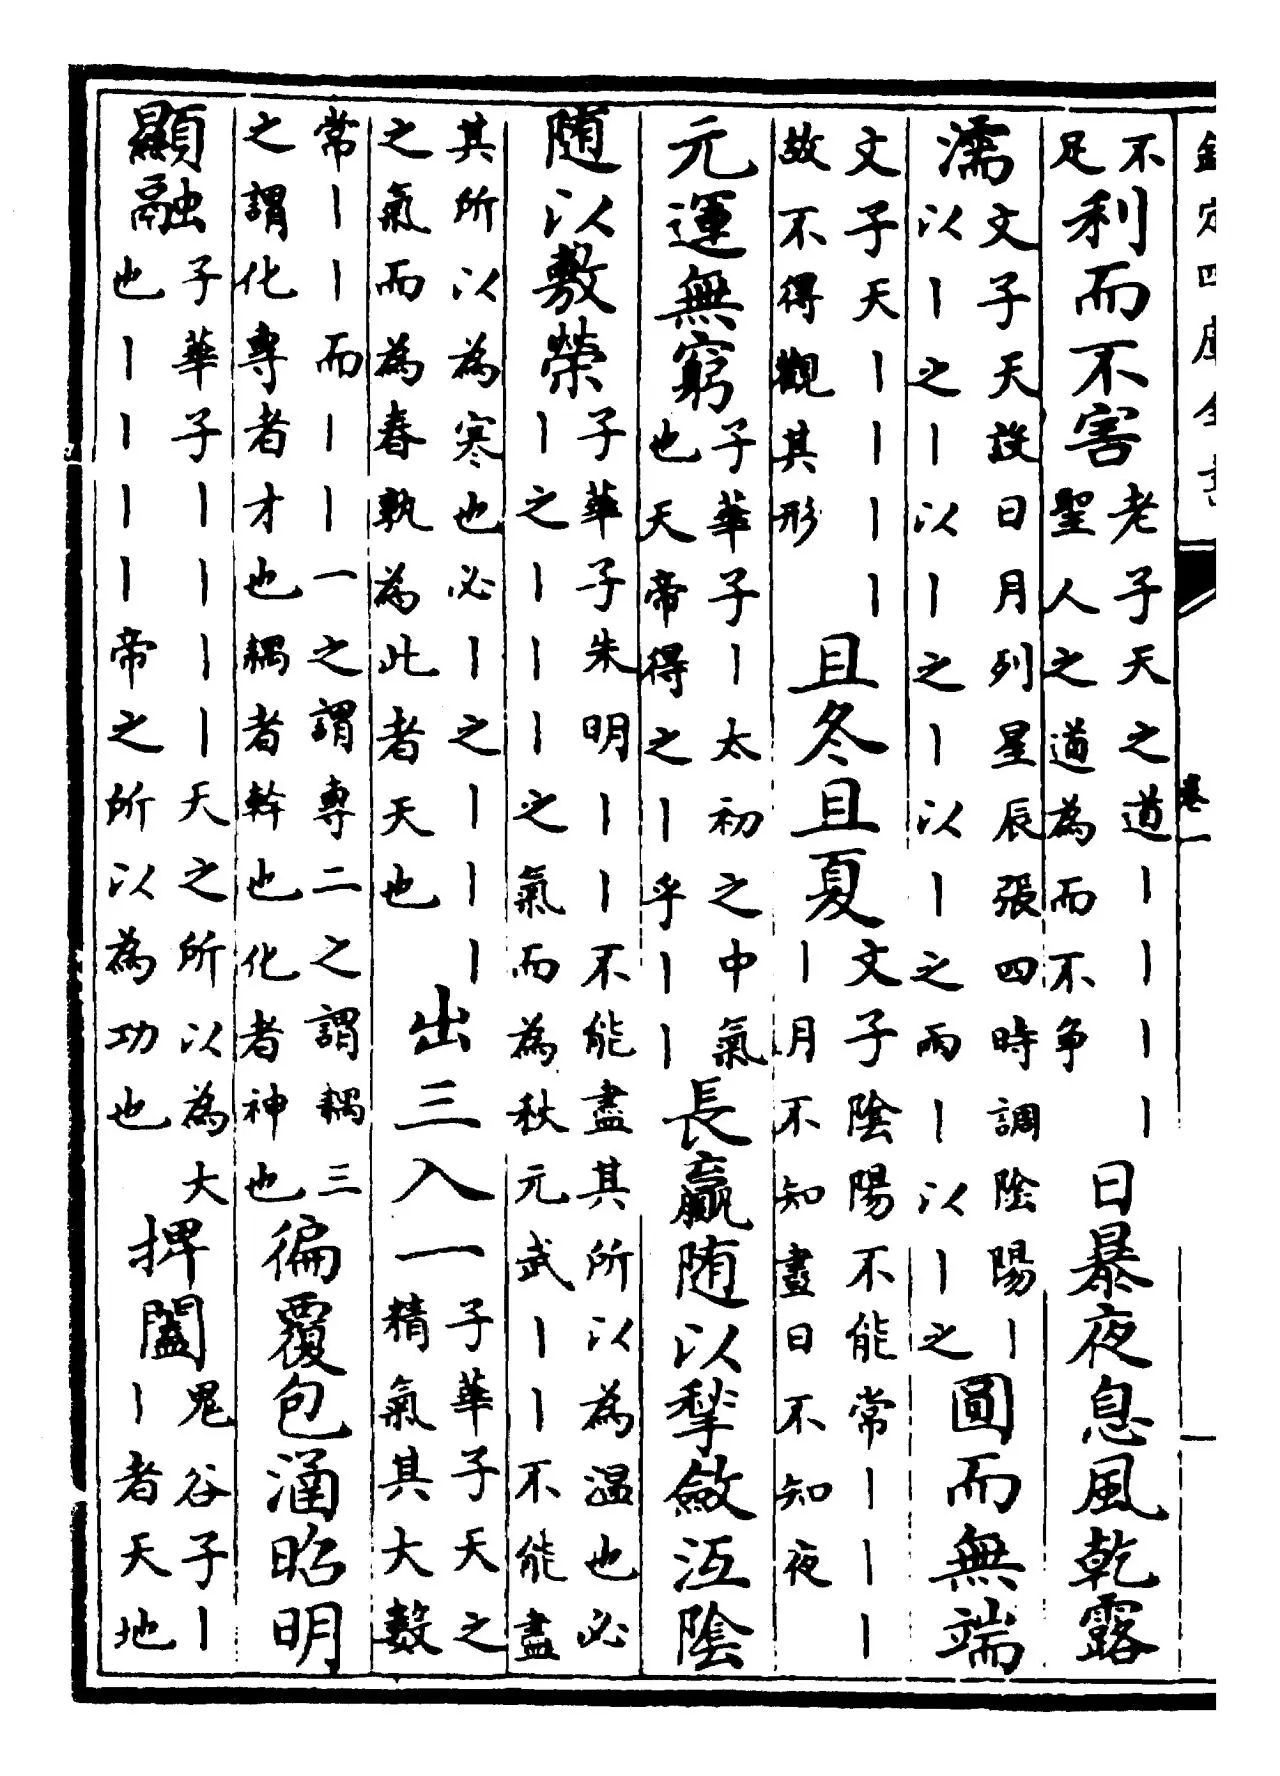 欽定四庫全書
卷一
不足利而不害老子天之道丨丨丨丨聖人之道為而不争日暴夜息風乾露
濡文子天設日月列星辰張四時調陰陽丨以丨之丨以丨之丨以丨之雨丨以丨之圓而無端
文子天丨丨丨丨故不得觀其形且冬且夏文子陰陽不能常丨丨丨丨月不知盡日不知夜
元運無窮子華子丨太初之中氣也天帝得之丨乎丨丨長贏随以揫斂沍陰
随以敷榮子華子朱明丨丨不能盡其所以為温也必丨之丨丨丨之氣而為秋元武丨丨不能盡
其所以為寒也必丨之丨丨丨之氣而為春孰為此者天也出三入一子華子天之精氣其大數
常丨丨而丨丨一之謂專二之謂耦三之謂化專者才也耦者幹也化者神也徧覆包涵昭明
顯融子華子丨丨丨丨天之所以為大也丨丨丨丨帝之所以為功也捭闔鬼谷子丨丨者天地